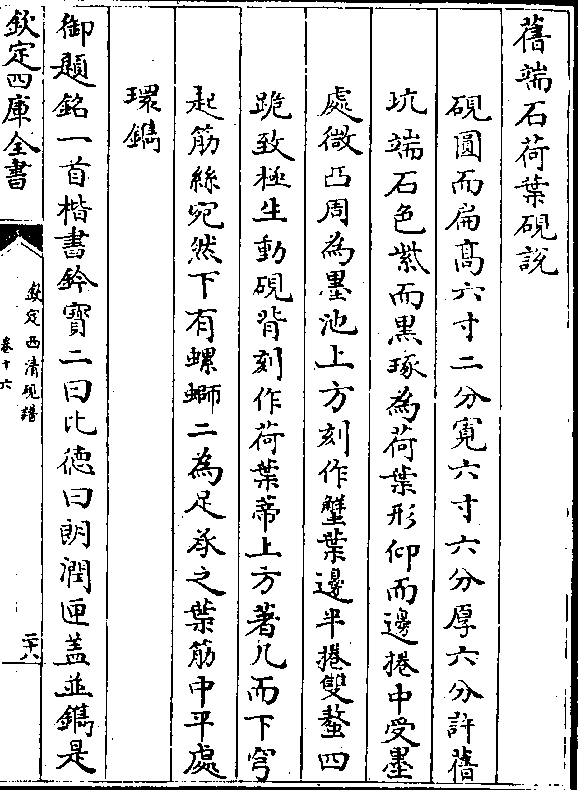 舊端石荷葉硯說
硯圓而扁高六寸二分寬六寸六分厚六分許舊
坑端石色紫而黑琢為荷葉形仰而邊捲中受墨
處微凸周為墨池上方刻作蟹葉邊半捲雙螯四
跪致極生動硯背刻作荷葉蒂上方著几而下穹
起筋絲宛然下有螺螄二為足承之葉筋中平處
環鐫
御題銘一首楷書鈐寶二曰比德曰朗潤匣蓋並鐫是
欽定四庫全書
欽定西清硯譜
卷十六
二十八